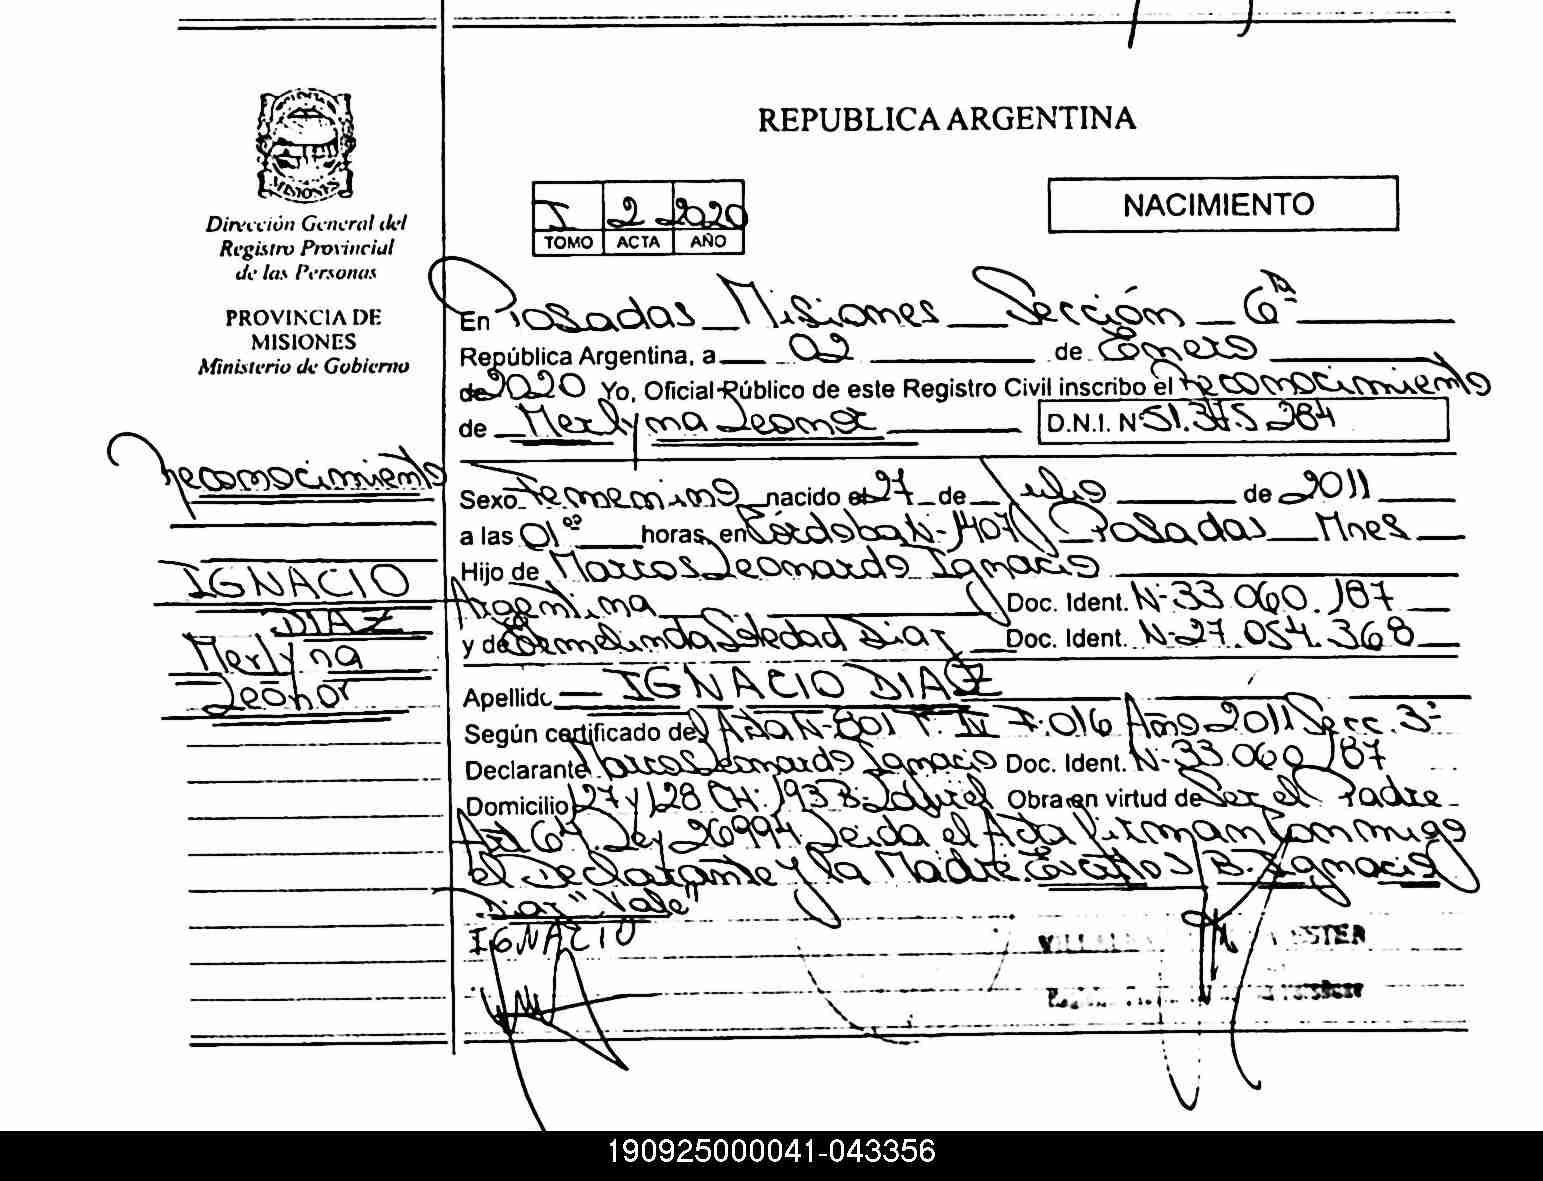 REPUBLICA ARGENTINA
MISIONES
Dirección General del
Registro Provincial
de las Personas
PROVINCIA DE
MISIONES
Ministerio de Gobierno
I 2 2020
TOMO ACTA AÑO
NACIMIENTO
En Posadas Misiones Sección 6ta
República Argentina, a 02 de Enero
de 2020 Yo, Oficial Público de este Registro Civil inscribo el Reconocimiento
de Merlyna Leonor D.N.I. Nº 51.375.284
Reconocimiento
IGNACIO
DIAZ
Merlyna
Leonor
Sexo Femenino nacido el 27 de Julio de 2011
a las 01 horas, en Córdoba Nº 1407 Posadas Mnes
Hijo de Marcos Leonardo Ignacio
Argentina Doc. Ident. Nº 33.060.187
y de Ermelinda Soledad Diaz Doc. Ident. Nº 27.054.368
Apellido IGNACIO DIAZ
Según certificado del Acta Nº 801 Tº IV F: 016 Año 2011 Secc. 3ª
Declarante Marcos Leonardo Ignacio Doc. Ident. Nº 33.060.187
Domicilio 127 y 128 CH: 193 Bº Obra en virtud de Ser el Padre
Art 64. Ley 26994. Leida el Acta firman conmigo
el Declarante y la Madre. B. Ignacio
Diaz "Vale"
IGNACIO
190925000041-043356